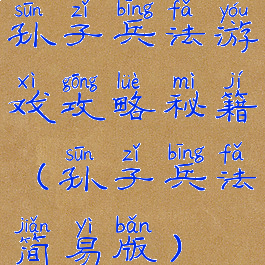 sūn zǐ bīng fǎ yóu
孙子兵法游
xì gōng luè mì jí
戏攻略秘籍
sūn zǐ bīng fǎ
（孙子兵法
jiǎn yì bǎn
简易版）